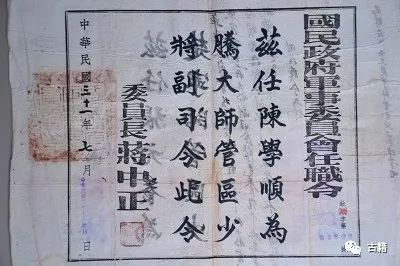 國民政府軍事委員會任職令
茲任陳學順為
騰大師管區少
將副司令此令
委員長蔣中正
中華民國三十一年七月日
古籍